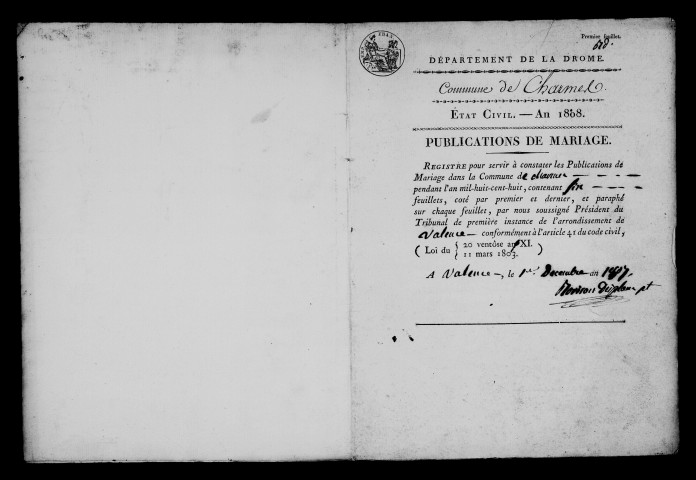 Premier feuillet.
DÉPARTEMENT DE LA DROME.
Commune de Charmes.
ÉTAT CIVIL. — AN 1808.
PUBLICATIONS DE MARIAGE.
REGISTRE pour servir à constater les Publications de
Mariage dans la Commune de charmes
pendant l'an mil-huit-cent-huit, contenant six
feuillets, coté par premier et dernier, et paraphé
sur chaque feuillet, par nous soussigné Président du
Tribunal de première instance de l'arrondissement de
Valence — conformément à l'article 41 du code civil,
( Loi du { 20 ventôse an XI.
11 mars 1803. } )
A Valence, le 1er Decembre an 1807